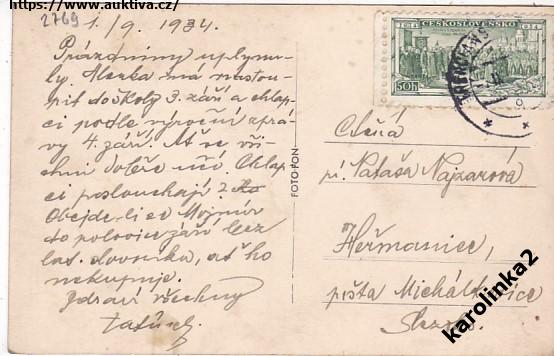 https://www.auktiva.cz/
2769
1./9. 1934.
Prázdniny uplynu-
ly. Alenka má nastou-
pit do školy 3. září a chlap-
ci podle výroční zprá-
vy 4. září. Ať se vši-
chni dobře učí. Chlap-
ci poslouchají?
Obejde-li se Mojmír
do polovice září bez
lat. slovníku, ať ho
nekupuje.
Zdraví všechny
tatínek.
FOTO-FON
ČESKOSLOVENSKO
1914
50h
Ctěná
pí. Nataša Najzarová
Heřmanice,
pošta Michálkovice
Slezsko
karolinka2